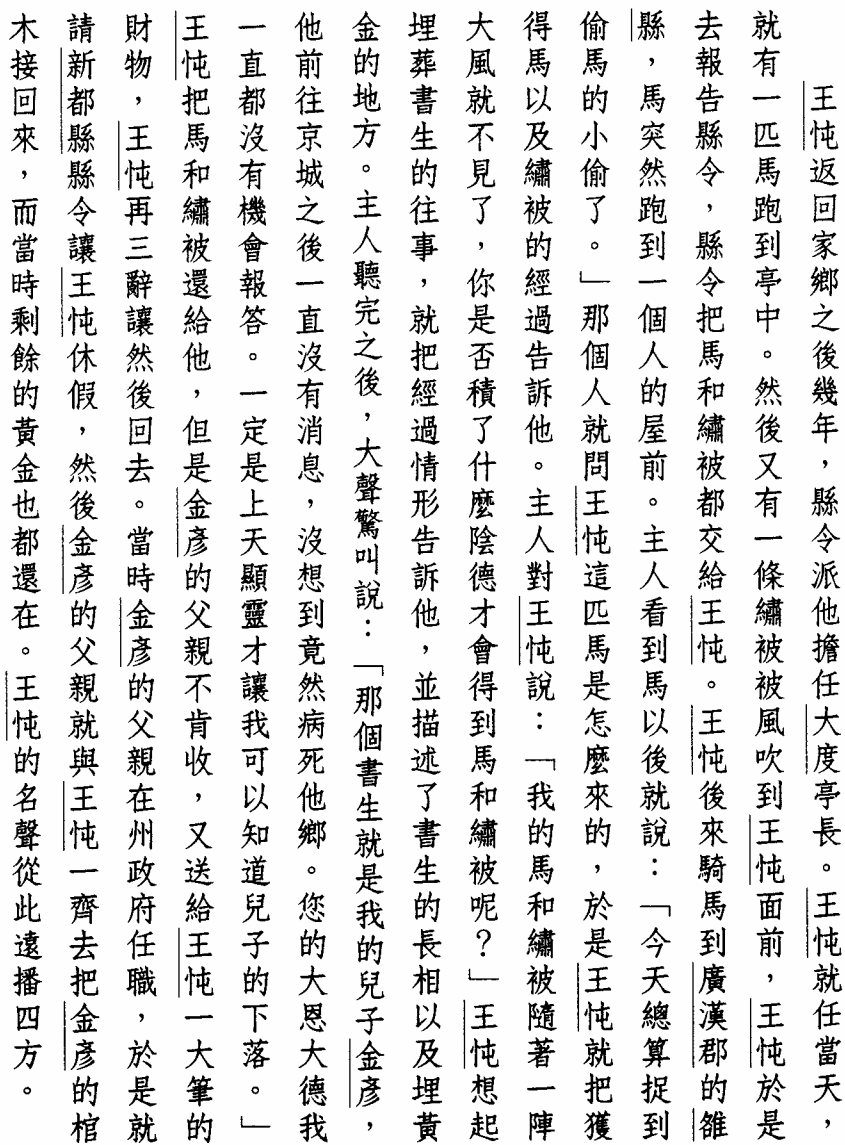 王忳返回家鄉之後幾年，縣令派他擔任大度亭長。王忳就任當天，
就有一匹馬跑到亭中。然後又有一條繡被被風吹到王忳面前，王忳於是
去報告縣令，縣令把馬和繡被都交給王忳。王忳後來騎馬到廣漢郡的雒
縣，馬突然跑到一個人的屋前。主人看到馬以後就說：「今天總算捉到
偷馬的小偷了。」那個人就問王忳這匹馬是怎麼來的，於是王忳就把獲
得馬以及繡被的經過告訴他。主人對王忳說：「我的馬和繡被隨著一陣
大風就不見了，你是否積了什麼陰德才會得到馬和繡被呢？」王忳想起
埋葬書生的往事，就把經過情形告訴他，並描述了書生的長相以及埋黃
金的地方。主人聽完之後，大聲驚叫說：「那個書生就是我的兒子金彥，
他前往京城之後一直沒有消息，沒想到竟然病死他鄉。您的大恩大德我
一直都沒有機會報答。一定是上天顯靈才讓我可以知道兒子的下落。」
王忳把馬和繡被還給他，但是金彥的父親不肯收，又送給王忳一大筆的
財物，王忳再三辭讓然後回去。當時金彥的父親在州政府任職，於是就
請新都縣縣令讓王忳休假，然後金彥的父親就與王忳一齊去把金彥的棺
木接回來，而當時剩餘的黃金也都還在。王忳的名聲從此遠播四方。